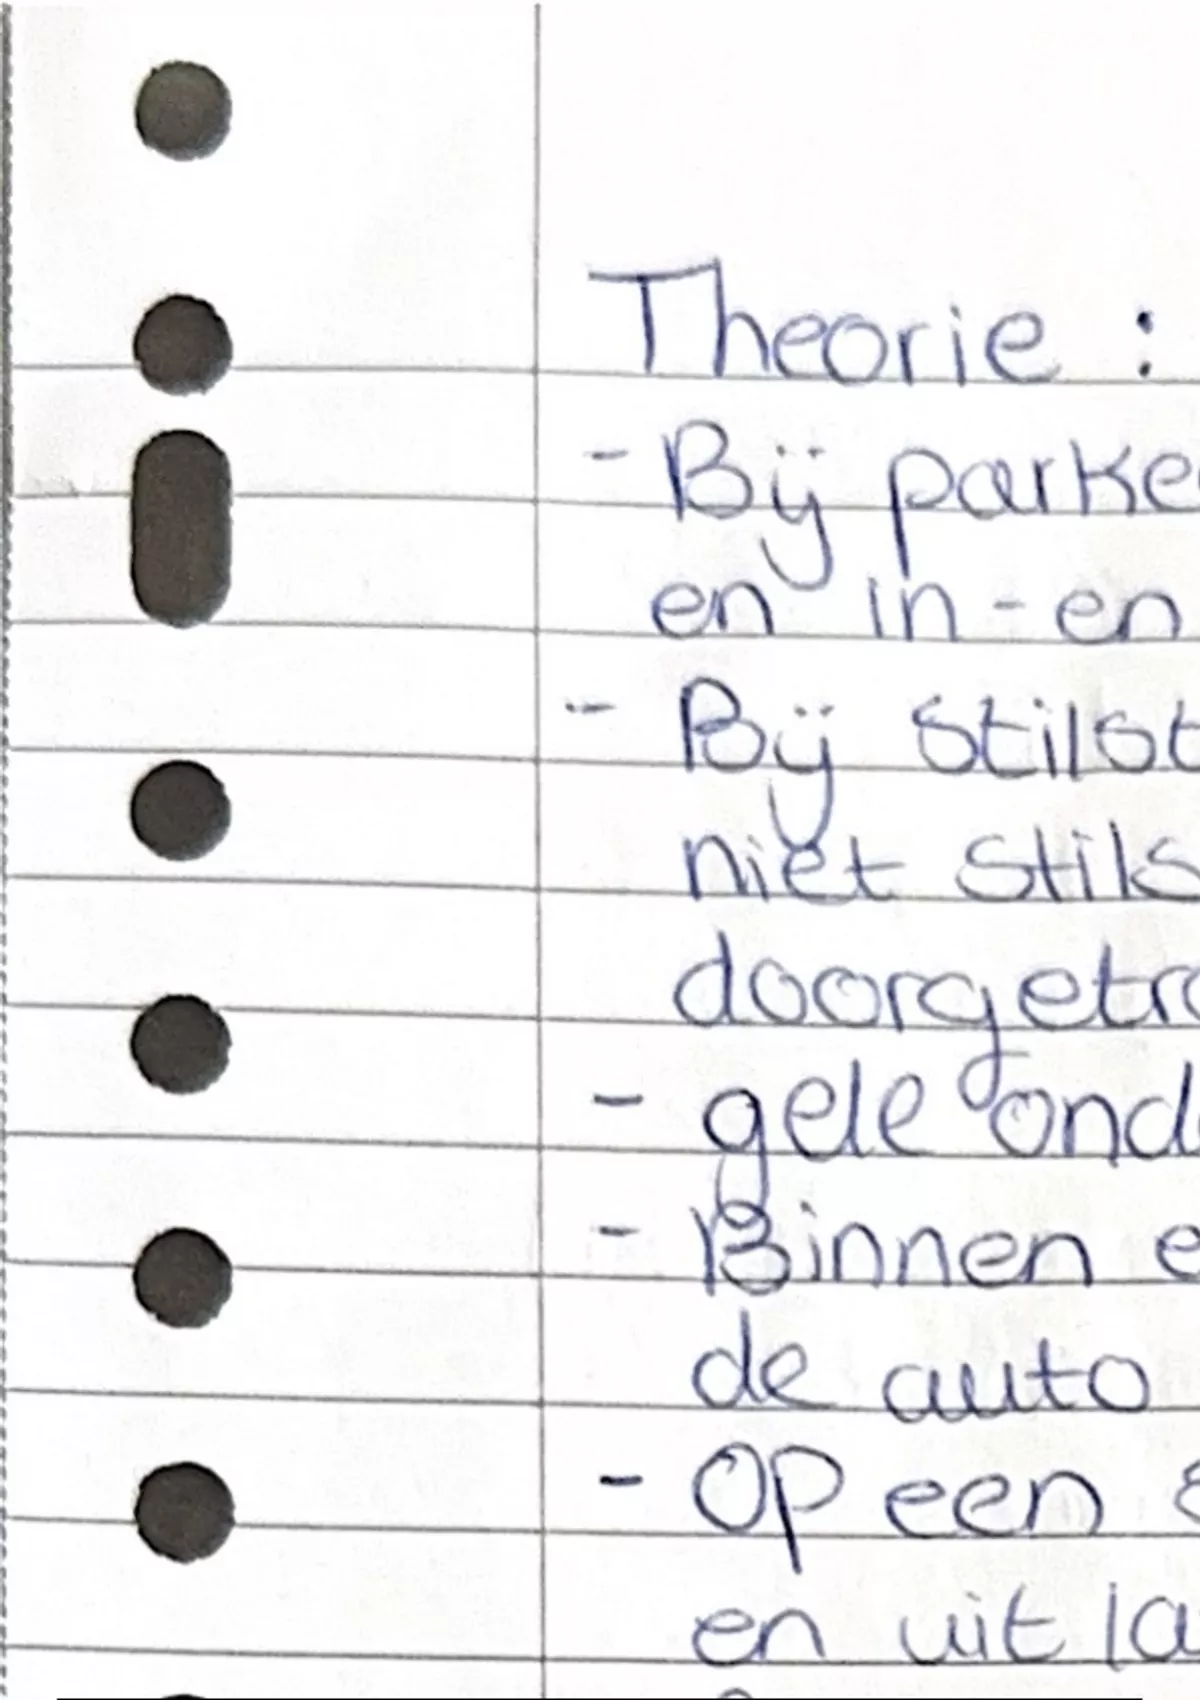 Theorie :
- Bij parke
en in-en
- Bij stilst
niet stils
doorgetr
- gele ond
- Binnen e
de auto
- Op een
en uit la